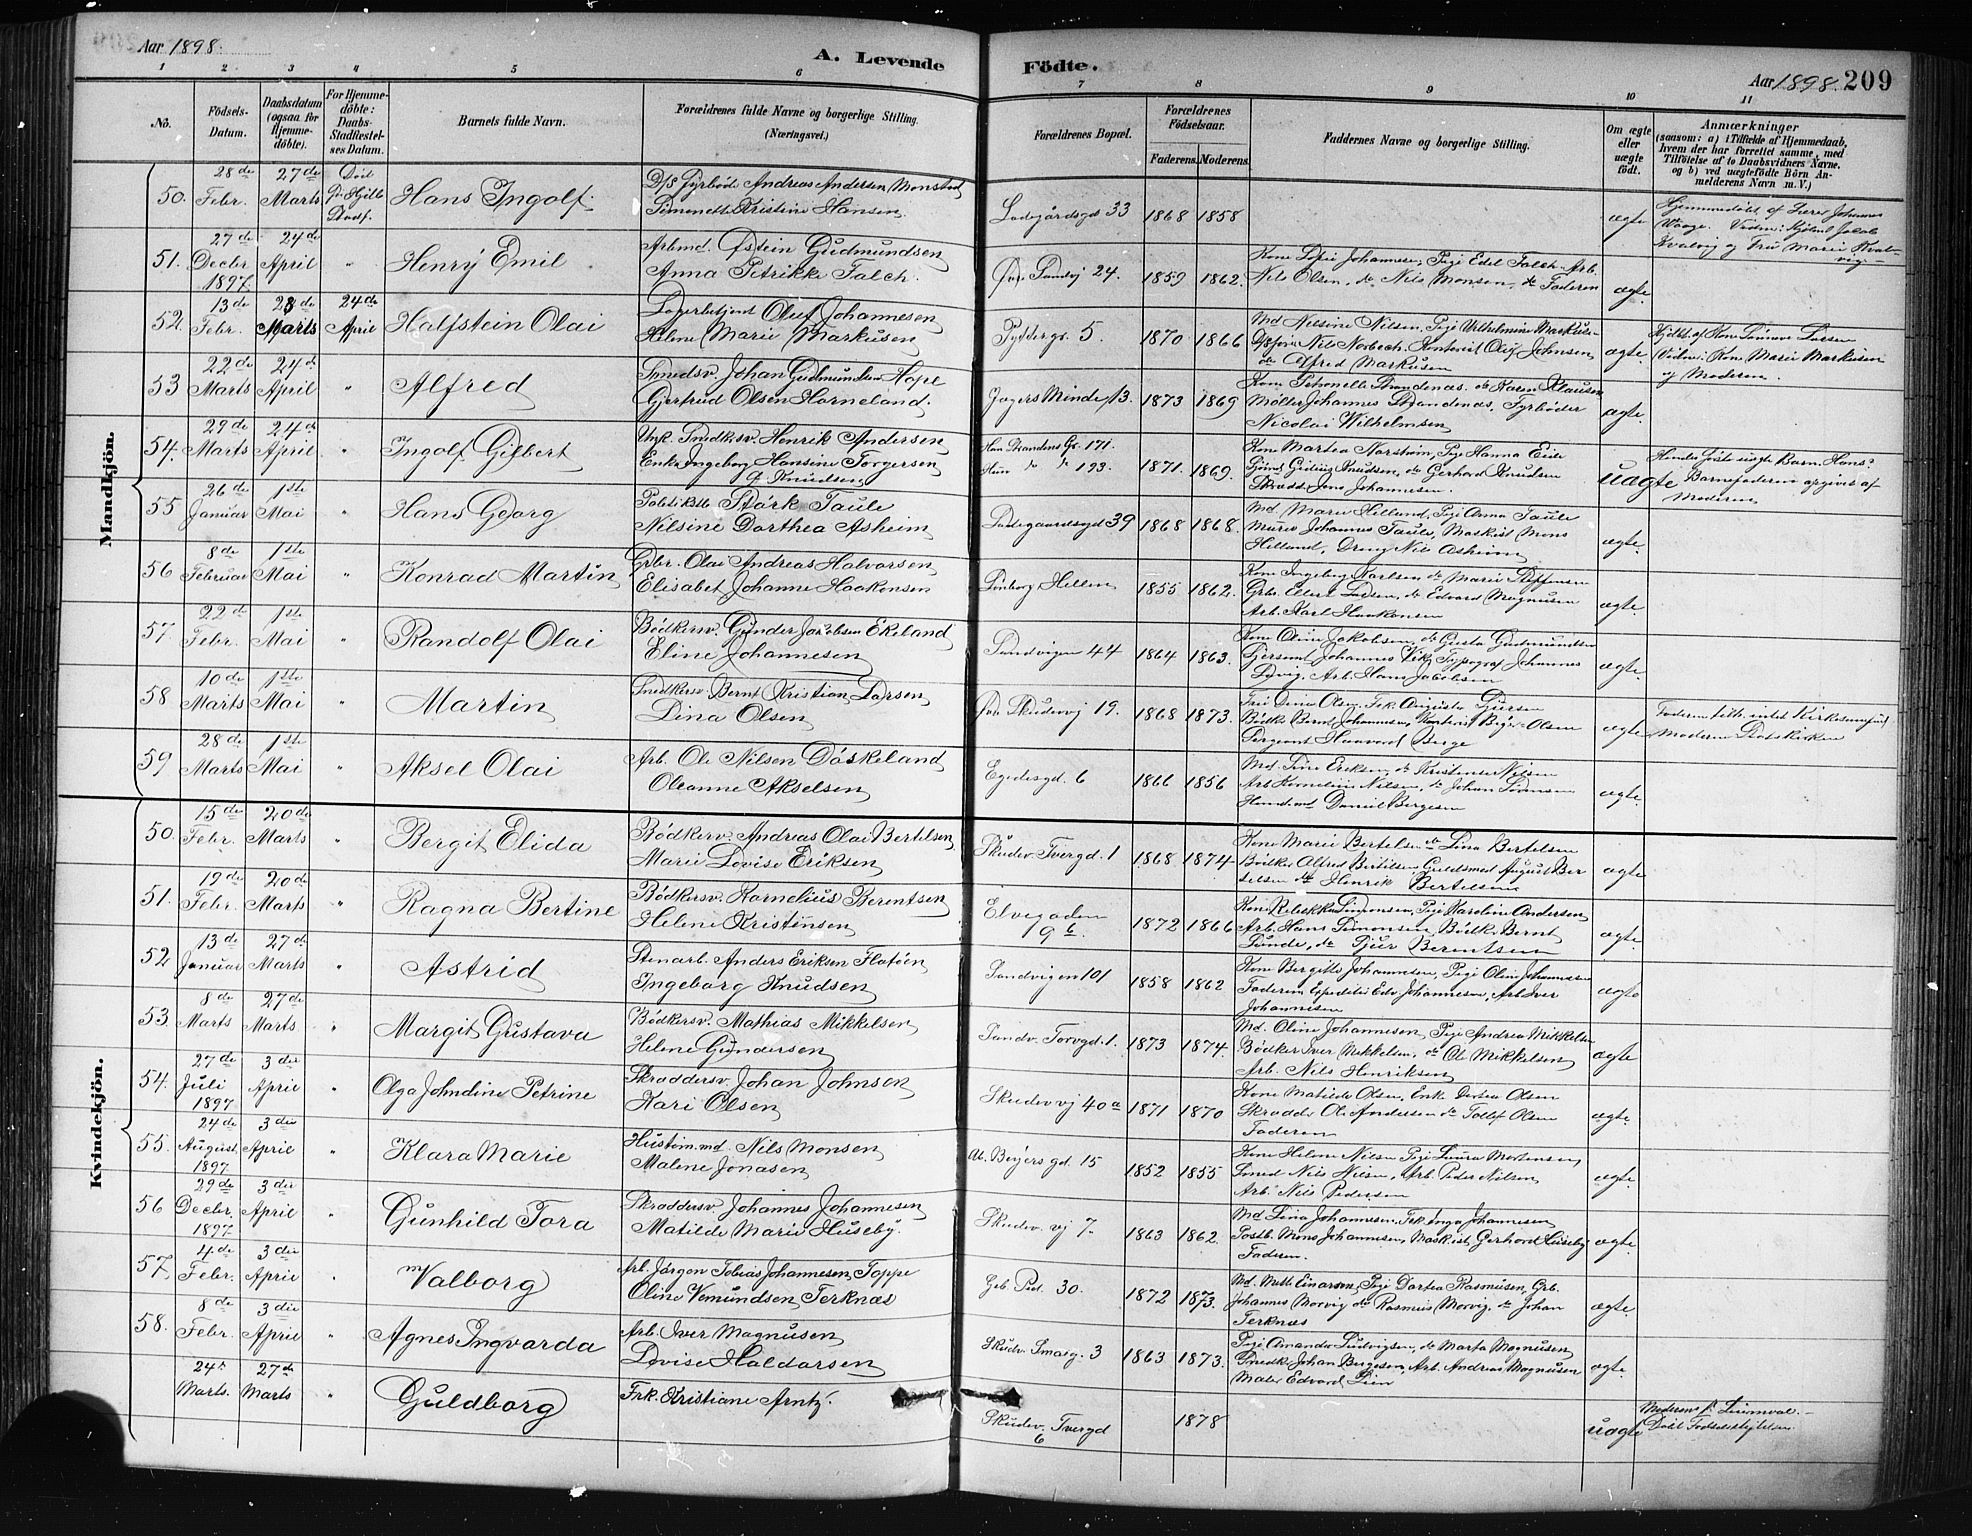 Aar 1898.
A. Levende Födte.
Aar 1898. 209
1 2 3 4 5 6 7 8 9 10 11
No. Födsels-Datum. Daabsdatum (ogsaa for Hjemme-döbte). For Hjemme-döbte: Daabs-Stadfæstel-ses Datum. Barnets fulde Navn. Forældrenes fulde Navne og borgerlige Stilling. (Næringsvei.) Forældrenes Bopæl. Forældrenes Födselsaar. Faderens. Moderens. Faddernes Navne og borgerlige Stilling. Om ægte eller uægte födt. Anmærkninger (saasom: a) i Tilfælde af Hjemmedaab, hvem der har forrettet samme, med Tilföielse af to Daabsvidners Navne, og b) ved uægtefödte Börn An-melderens Navn m. V.)
Mandkjön.
50. 28de Febr. 27de Marts Hans Ingolf. D/S Fyrböder Andreas Andersen Monstad Simonette Kristine Hansen Ladegårdsgd 33 1868 1858 ægte Hjemmedöbt af Lærer Johannes Waage. Vidner: Jakob Kvalvig og Fru Marie Kvalvig
51. 27de Decbr. 1897 24de April " Henry Emil Arbmd. Østein Gudmundsen Anna Petrikke Falch. Øvr. Sandvj 24. 1859 1862. Kone Sofie Johannesen, Pige Edel Falch. Arb. Nils Olsen, do Nils Monsen, do Faderen ægte
52. 13de Febr. 28de Marts 24de April Halfstein Olai Lagerbetjent Oluf Johannesen Helene Marie Markusen Pyddergr. 5. 1870 1866 Md Nilsine Nilsen, Pige Vilhelmine Markusen Nils Norbech, Kontorist Oluf Johnsen, do Alfred Markusen ægte. Vidner: Kone Marie Markusen og Moderen.
53 22de Marts 24de April " Alfred Smedsv. Johan Gudmundsen Hope Gjertrud Olsen Horneland. Jægers Minde 13. 1873 1869 Kone Petronelle Strandenæs, do Karen Klausen Möller Johannes Strandenæs, Fyrböder Nicolai Wilhelmsen ægte.
54. 29de Marts 24de April " Ingolf Gilbert Unk. Snedkersv. Henrik Andersen Enke Ingeborg Hansine Torgersen f. Knudsen Han Strandens Gr. 171. Hun do do 193. 1871. 1869. Kone Martea Norström, Pige Hanna Eide Knudsen, do Gerhard Knudsen Skrædder Jens Johannesen. uægte Hendes förste uægte Barn. Hans? Barnefaderen opgivet af Moderen
55 26de Januar 1ste Mai " Hans Georg Politikstb Störk Taule Nilsine Dorthea Asheim Ladegaardsgd 39 1868 1868. Md. Marie Helland, Pige Anna Taule Murer Johannes Taule, Maskist Mons Helland, Dreng Nils Asheim ægte.
56 8de Februar 1ste Mai " Konrad Martin Grbr. Olai Andreas Halvorsen Elisabet Johanne Haakonsen Hellen 1855 1862. Kone Ingeborg Karlsen do Marie Steffensen Grbr. Ellert Larsen, do Edvard Magnusen Arb. Karl Haakonsen ægte.
57. 22de Febr. 1ste Mai " Randolf Olai Bödkersv. Gunder Jacobsen Ekeland Eline Johannesen Sandvigen 44 1864 1863. Kone Oline Jakobsen, do Gusta Gudmundsen Johannes Vik, Typograf Johannes Arb. Hans Jacobsen ægte.
58 10de Marts 1ste Mai " Martin Snedkersv Bernt Kristian Larsen Lina Olsen Øvr Skudevj 19. 1868 1873. Olsen, Frk. Augusta Bödker Bernt Johannesen, Kontorist Birger Olsen Sergeant Haavard Berge ægte Faderen tilh. intet Kirkesamfund Moderen Statskirken
59 28de Marts 1ste Mai " Aksel Olai Arb. Ole Nilsen Döskeland Oleanne Akselsen Egedesgd. 6 1866 1856 Md. Eriksen, do Kristense Nilsen Arb Kornelius Nilsen, do Johan Sörensen Daniel Bergesen ægte.
Kvindekjön.
50. 15de Febr. 20de Marts " Bergit Elida Bödkersv. Andreas Olai Bertelsen Marie Lovise Eriksen Skudev. Tvergd. 1 1868 1874 Kone Marie Bertelsen do Lina Bertelsen Bödker Alfred Bertelsen, Guldsmed August Bertelsen do Henrik Bertelsen ægte
51. 19de Febr. 20de Marts " Ragna Bertine Bödkersv. Kornelius Berentsen Helene Kristensen Elvegaden 19b. 1872 1866 Kone Rebekka Simonsen, Pige Karoline Andersen Arb. Hans Simonsen, Bödk. Bernt Sunde, do Berentsen ægte.
52 13de Januar 27de Marts " Astrid Stenarb. Anders Eriksen Flatöen Ingeborg Knudsen Sandvigen 101 1858 1862 Kone Bergitte Johannesen, Pige Oline Johannesen Faderen, Expeditör Edv. Johannesen, Arb Iver Johannesen ægte
53. 8de Marts 27de Marts " Margit Gustava Bödkersv. Mathias Mikkelsen Helene Gundersen Sandv. Torvgd. 1. 1873 1874. Md. Oline Johannesen, Pige Andrea Mikkelsen Bödker Iver Mikkelsen, do Ole Mikkelsen Arb. Nils Henriksen ægte
54. 27de Juli 1897 3die April " Olga Johndine Petrine Skræddersv. Johan Johnsen Kari Olsen Skudevvj 40a 1871 1870 Kone Matilde Olsen, Enke Dortea Olsen Skrædder Ole Andersen do Tollef Olsen Faderen ægte.
55. 24de August 1897 3die April " Klara Marie Hustöm.md. Nils Monsen Malene Jonasen Beyers gd. 15 1852 1855 Kone Helene Nilsen Pige Laura Mortensen, Smed Nils Nilsen, Arb. Peder Nilsen, Arb. Nils Pedersen ægte.
56 29de Decbr. 1897 3die April " Gunhild Tora Skræddersv Johannes Johannesen Matilde Marie Huseby. Skudev. vj 7. 1863 1862. Md Lina Johannesen. Frk. Inga Johannesen Postb. Mons Johannesen, Maskist. Gerhard Huseby Faderen. ægte.
57. 4de Febr. 3die April " Valborg Arb. Jörgen Tobias Johannesen Toppe Oline Vemundsen Terknæs Geb. Ped. 30. 1872 1873. Md. Mette Einarsen, Pige Dortea Rasmusen, Grb. Johannes Morvig do Rasmus Morvig, do Johan Terknæs ægte.
58. 8de Febr. 3die April " Agnes Ingvarda Arb. Iver Magnusen Lovise Haldorsen Skudv. Smalg. 3 1863 1873. Pige Amanda Ludvigsen, do Marta Magnusen, Snedk. Johan Bergesen, Arb. Andreas Magnusen Maler Edvard Lien ægte.
24. Marts. 27de Marts " Guldborg Frk. Kristiane Arntz. Skudev. Tvergd 6 1878 uægte Moderens f. Döbt Födselsstiftelsen